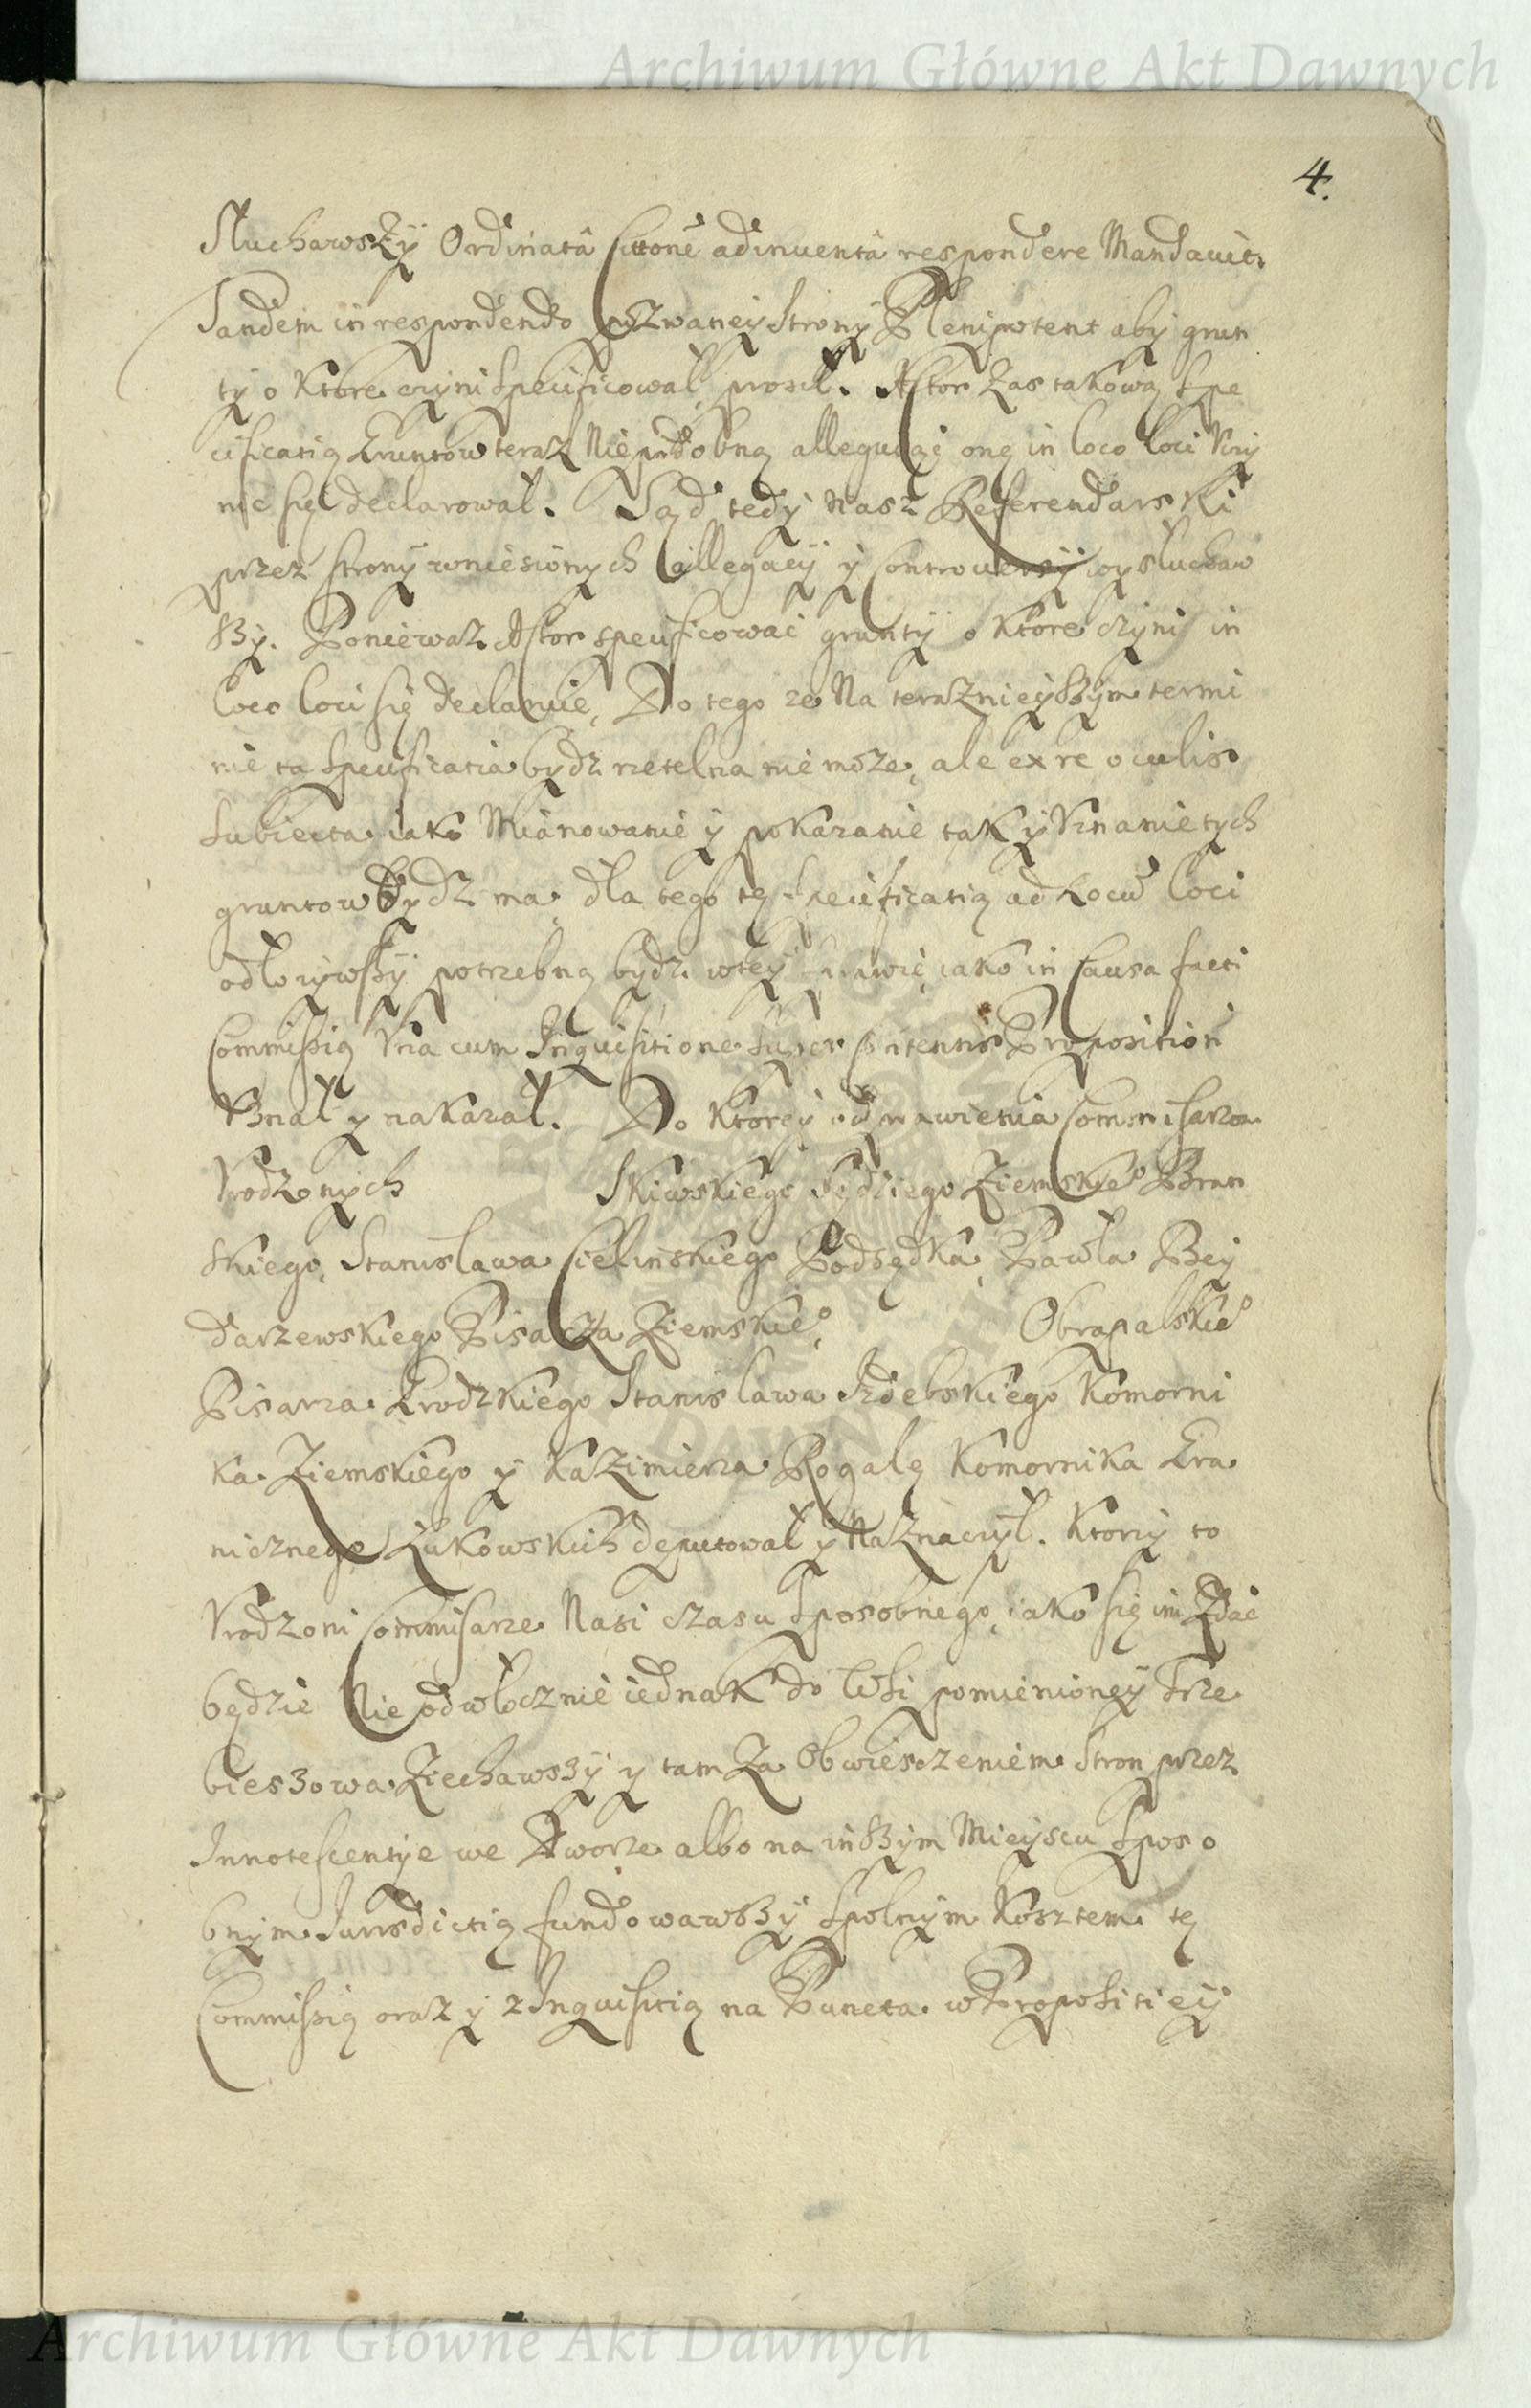 Archiwum Główne Akt Dawnych
4.
Słuchawszy Ordinatâ Citione adinventâ respondere Mandavit.
Tandem in respondendo pozwaney Strony Plenipotent aby grun
ty o ktore czyni specificował, prosił. Aktor zas takową Spe
cificatią Gruntow teraz Niepodobną alleguiąc oną in loco loci Vczy
nic się declarował. Sąd tedy Nasz Referendarski
przez strony wniesionych allegacyi y Controversyi wysłuchaw
szy. Poniewaz Aktor specificowac grunty o ktore czyni in
loco loci się declaruie, Do tego ze Na terazniejszym termi
nie ta specificatia bydz rzetelna nie moze, ale ex re oculis
subiecta iako Mianowanie y pokazanie tak y Vznanie tych
gruntow bydz ma, dla tego tę specificatią ad Locum loci
odłozywszy potrzebną bydz w tey sprawie, iako in Causa facti
Commissią Vna cum Inquisitione super Proposition
Vznał y nakazał. Do ktorey odprawienia Commisarzow
Vrodzonych Skiwskiego Sędziego Ziemskieo Bran
skiego, Stanisława Cielinskiego Podsędka, Pawła Bey
darzewskiego Pisarza Ziemskieo, Obrapalskieo
Pisarza Grodzkiego Stanisława Izdebskiego Komorni
ka Ziemskiego y Kazimierza Rogalę Komornika Gra
nicznego Łukowskich deputował y Naznaczył. Ktorzy to
Vrodzoni Commisarze Nasi czasu sposobnego, iako się im zdac
będzie Nieodwłocznie iednak do Wsi pomienioney Trze
bieszowa Ziechawszy y tam Za Obwiesczeniem Stron przez
Innotescentye we Dworze albo na inszym Mieyscu sposo
bnym Iurisdictią fundowawszy spolnym Kosztem tę
Commissią oraz y z Inquisitią na Puncta w Propositiey
Archiwum Główne Akt Dawnych